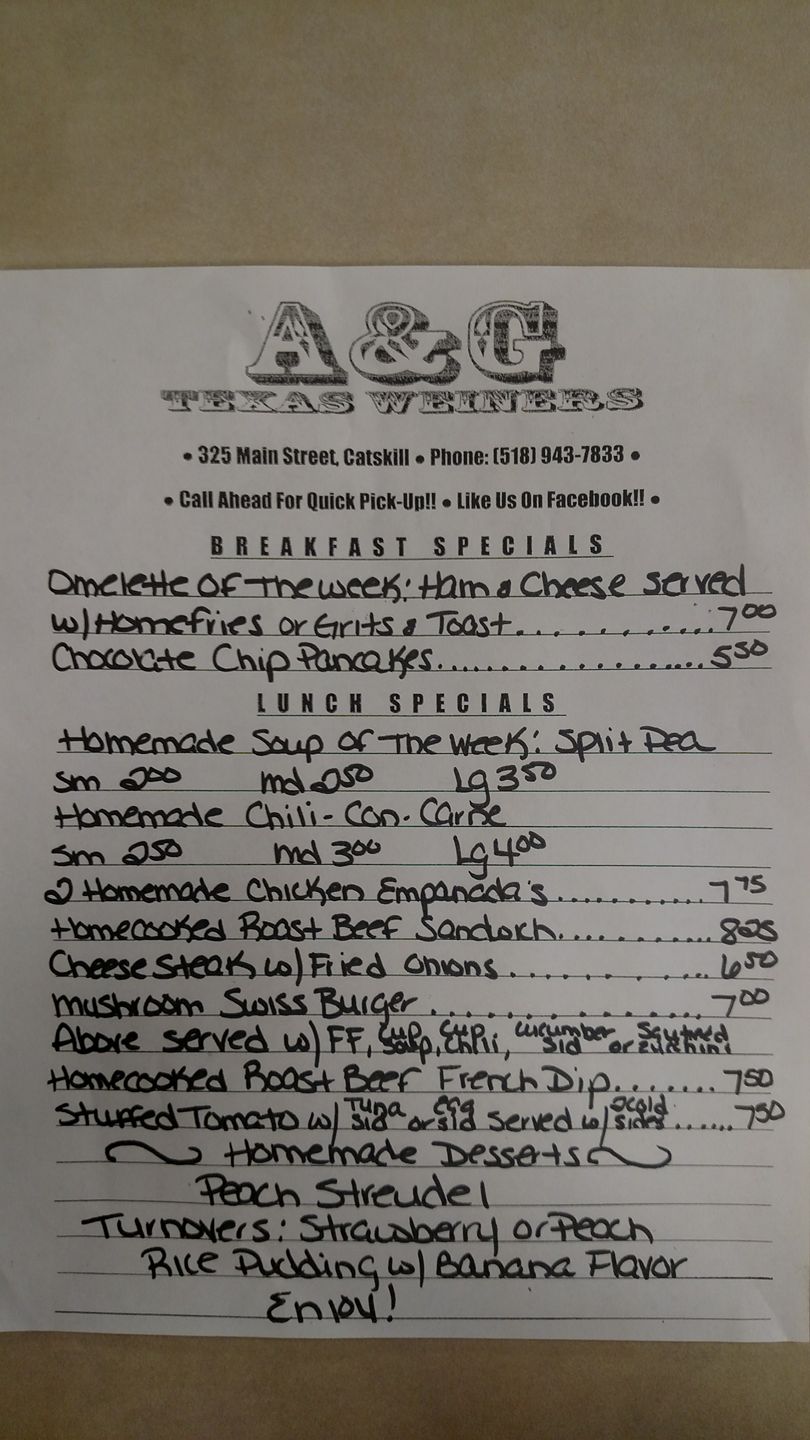 A&G
TEXAS WEINERS
• 325 Main Street, Catskill • Phone: (518) 943-7833 •
• Call Ahead For Quick Pick-Up!! • Like Us On Facebook!! •
BREAKFAST SPECIALS
Omelette Of The Week: Ham & Cheese served
w/ Homefries or Grits & Toast............7.00
Chocolate Chip Pancakes..................5.50
LUNCH SPECIALS
Homemade Soup Of The Week: Split Pea
Sm 2.00 md 2.50 Lg 3.50
Homemade Chili-Con-Carne
Sm 2.50 md 3.00 Lg 4.00
2 Homemade Chicken Empanada's...........7.75
Homecooked Roast Beef Sandwich..........8.25
Cheese Steak w/ Fried Onions..........6.50
Mushroom Swiss Burger...............7.00
Above served w/ FF, Cup Soup, Cup Chili, Cucumber Sld or Sauteed Zucchini
Homecooked Roast Beef French Dip.......7.50
Stuffed Tomato w/ Tuna Sld or Egg Sld Served w/ 2 Cold Sides......7.50
Homemade Desserts
Peach Streudel
Turnovers: Strawberry or Peach
Rice Pudding w/ Banana Flavor
Enjoy!